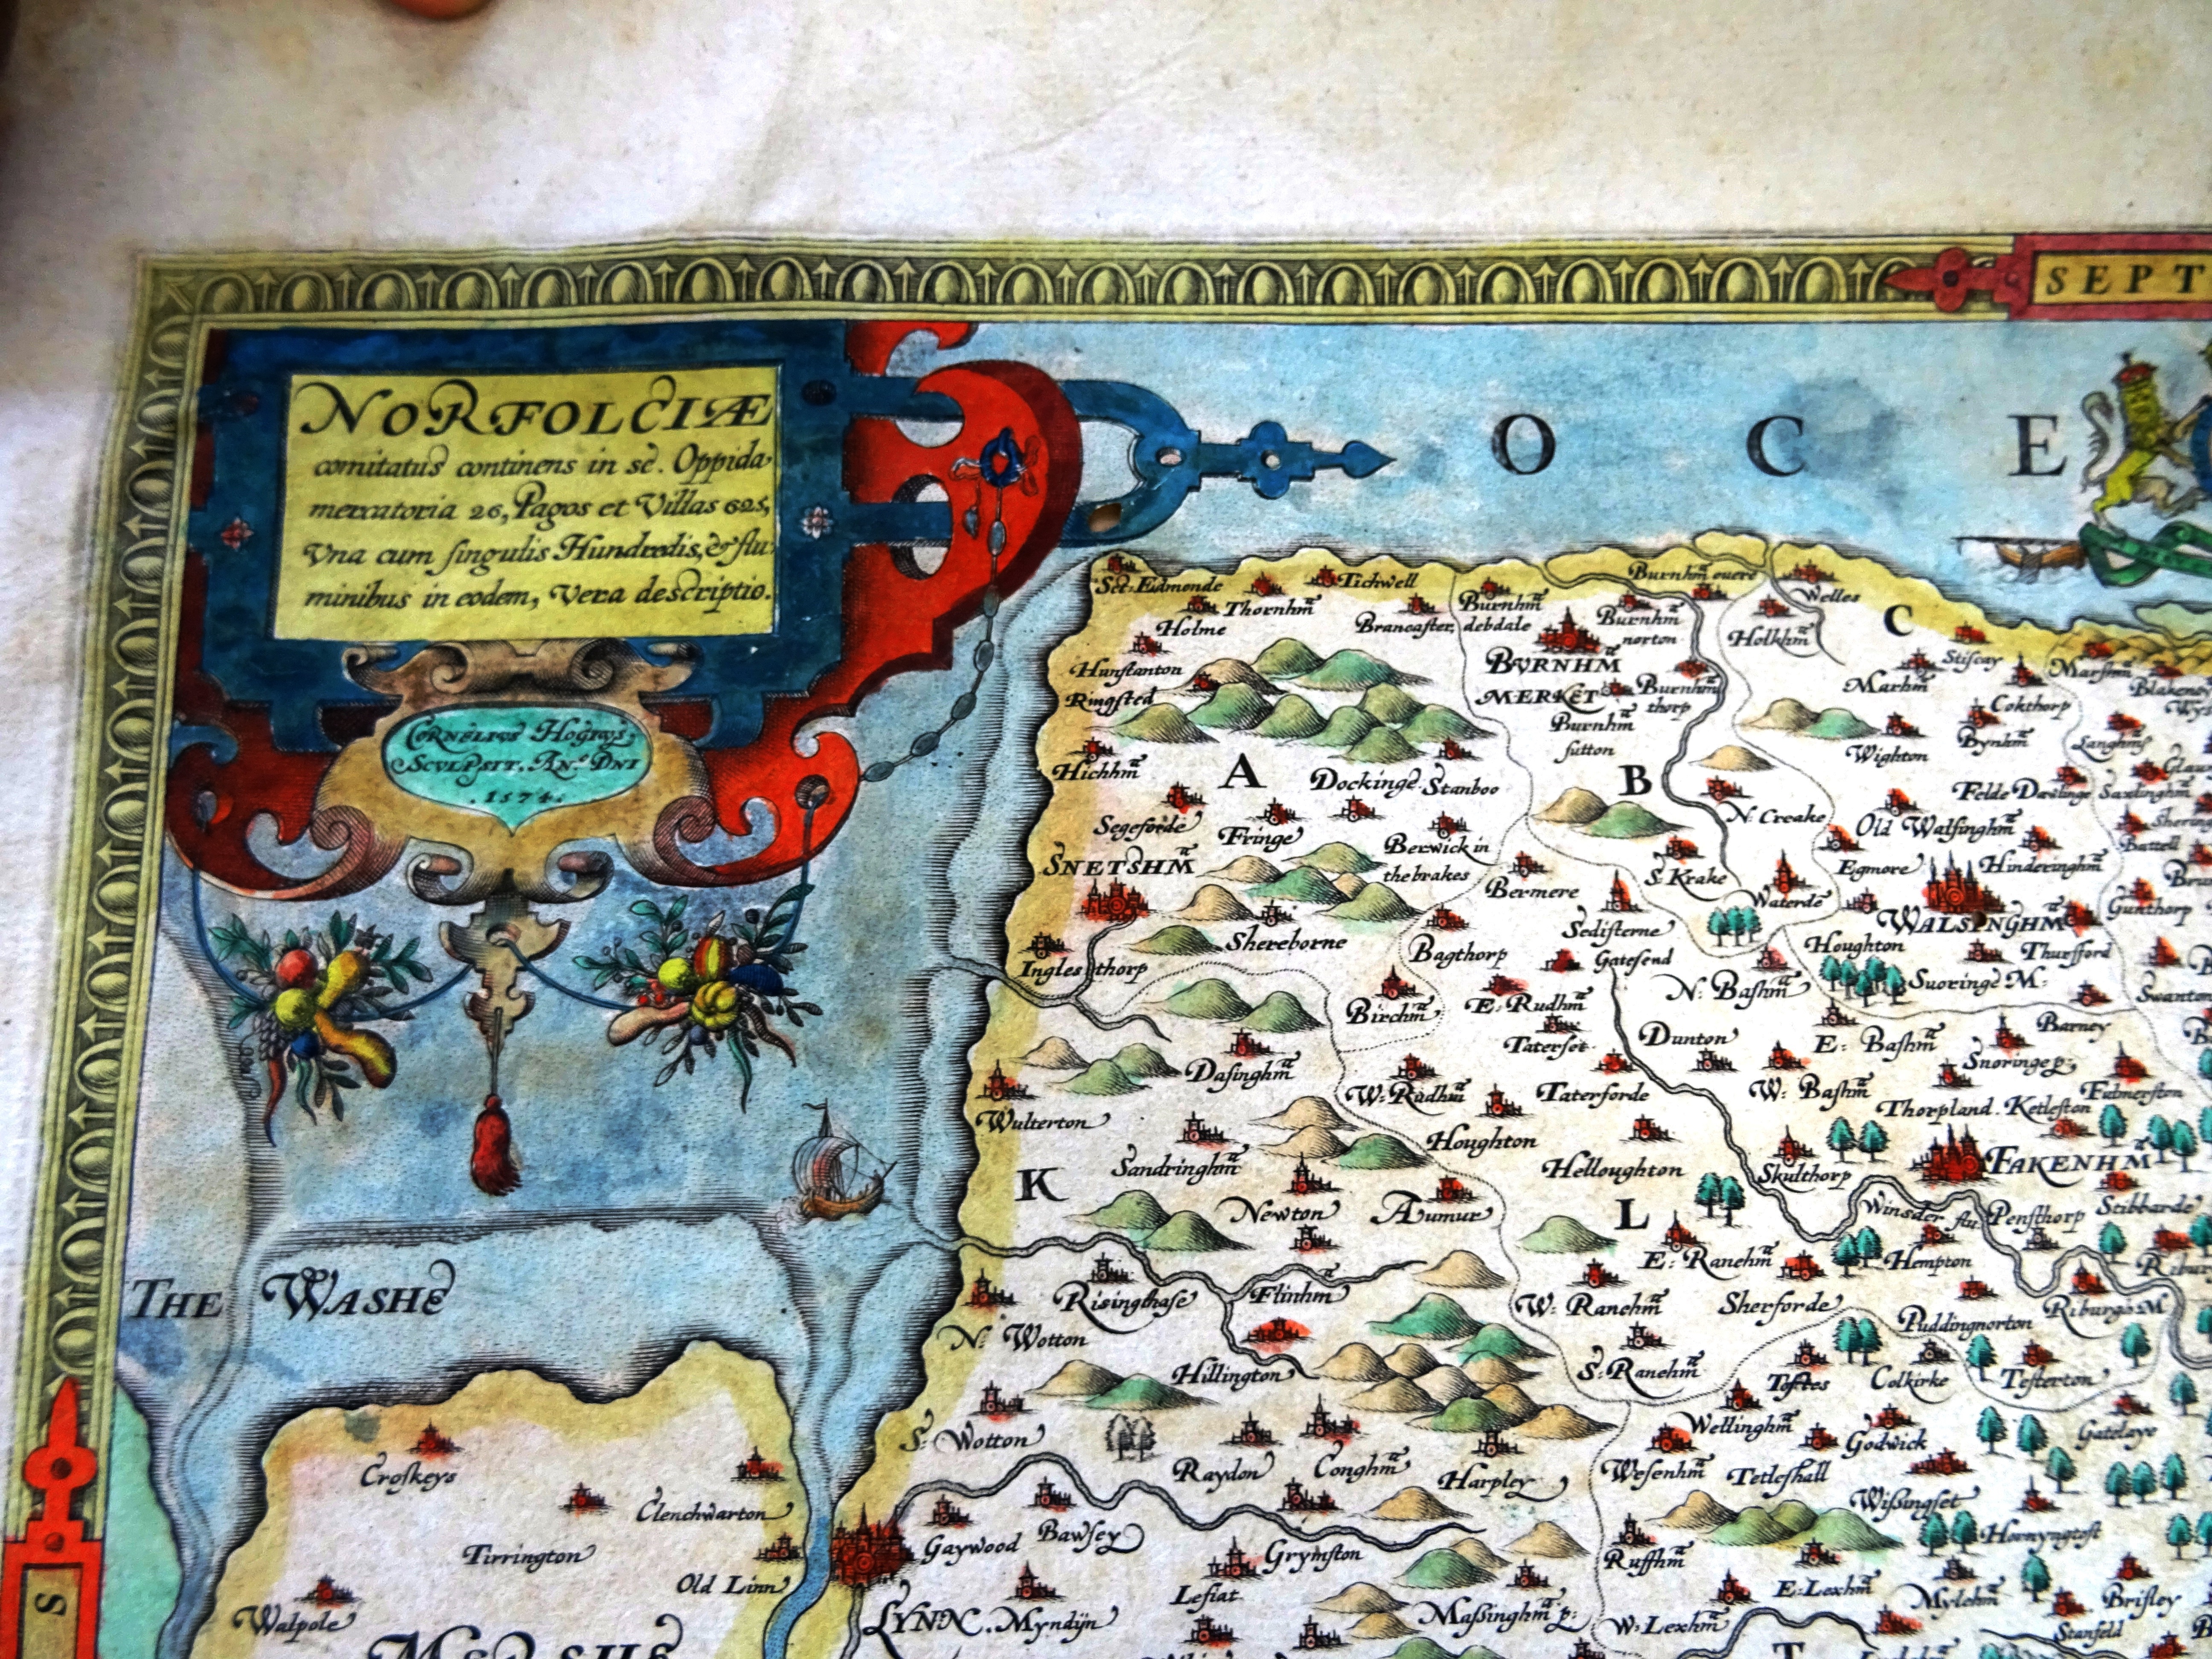 SEPT
NORFOLCIÆ
comitatus continens in se. Oppida
mercatoria 26, Pagos et Villas 625,
Vna cum singulis Hundredis, & flu:
minibus in eodem, Vera descriptio.
CORNELIVS HOGIVS,
SCVLPSIT. AN° DNI
.1574.
O C E
Sct: Edmonde
Thornhm
Tichwell
Holme
Brancaster
Burnhm
debdale
Burnhm ouere
Burnhm
norton
Welles
Holkhm
C
Hunstanton
Ringsted
BVRNHM
MERKET
Burnhm
thorp
Burnhm
sutton
Stifcay
Marhm
Marshm
Cokthorp
Bynhm
Wighton
Hichhm
A
Dockinge
Stanboo
B
N: Creake
Segeforde
Fringe
Berwick in
the brakes
Old Walsinghm
Egmore
Hinderinghm
SNETSHM
Bermere
S: Krake
Waterde
WALSINGHM
Gunthorp
Shereborne
Bagthorp
Sedisterne
Gatesend
Houghton
Thursford
Ingles thorp
Birchm
E: Rudhm
N: Bashm
Suoringe M:
Barney
Taterset
Dunton
E: Bashm
Snoringe p:
Dasinghm
W: Rudhm
Taterforde
W: Bashm
Thorpland.
Ketleston
Fulmerston
Wulterton
Houghton
Sandringhm
Helloughton
Skulthorp
FAKENHM
K
Newton
Aumur
L
Winsder flu
Pensthorp
Stibbarde
E: Ranehm
Hempton
THE WASHE
Risingchase
Flinhm
W: Ranehm
Sherforde
Puddingnorton
Riburgo M
N: Wotton
Hillington
S: Ranehm
Toftes
Colkirke
Testerton
Croskeys
S: Wotton
Raydon
Conghm
Harpley
Wellinghm
Godwick
Gatelaye
Wesenhm
Tetleshall
Clenchwarton
Wissingset
Hornyngtoft
Tirrington
Gaywood
Bawsey
Grymston
Ruffhm
Old Linn
Lesiat
E: Lexhm
Mylehm
Brisley
Walpole
LYNN.
Myndijn
Massinghm p:
W: Lexhm
Stanfeld
S
T